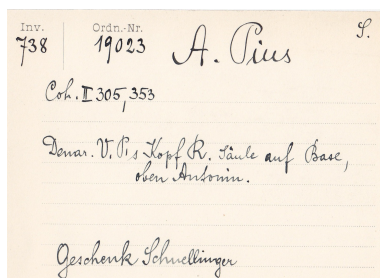 Inv. Ordn.-Nr. S.
738 19023 A. Pius
Coh. II 305, 353
Denar. V. P. s Kopf R. Säule auf Base,
oben Antonin.
Geschenk Schnellinger